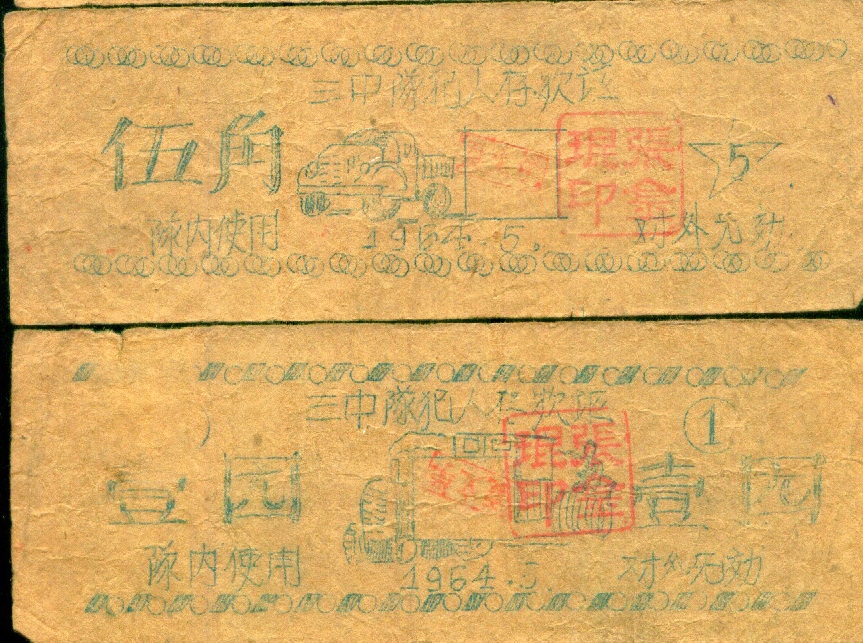 三中隊犯人存欵证
伍角
5
張金
琨印
隊内使用
1964.5.
对外无効
三中隊犯人存欵证
1
壹园
張金
琨印
壹园
隊内使用
1964.5.
对外无効